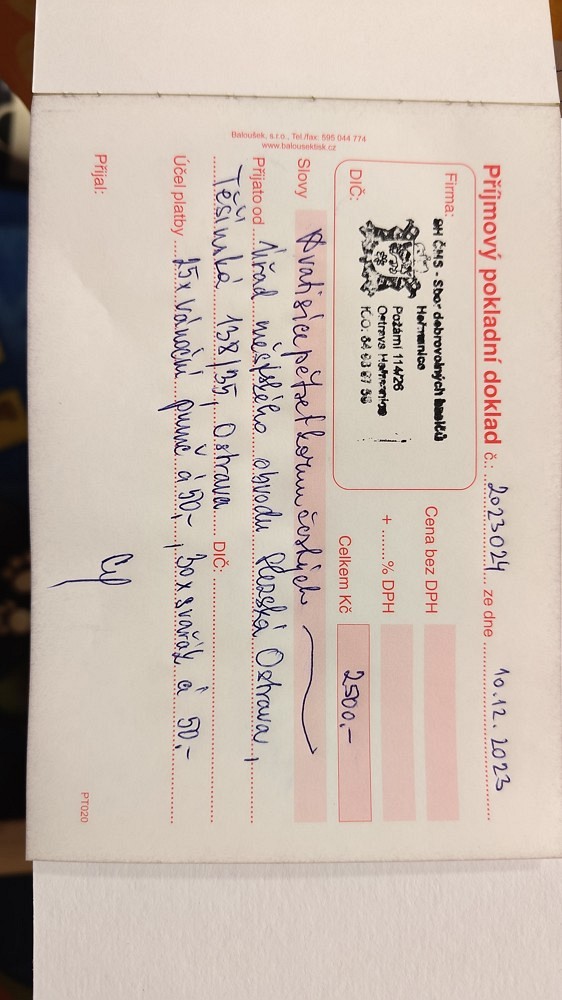 Příjmový pokladní doklad č.: 2023024 ze dne 10.12.2023
Firma:
SH ČMS - Sbor dobrovolných hasičů
Heřmanice
Požární 114/26
Ostrava Heřmanice
IČO:
DIČ:
Cena bez DPH
+ ...... % DPH
Celkem Kč 2500,-
Slovy Dvatisícepětsetkorunčeských
Přijato od Úřad městského obvodu Slezská Ostrava,
Těšínská 138/35, Ostrava DIČ:
Účel platby 25x vánoční punč á 50,-, 30x svařák á 50,-
Přijal:
Baloušek, s.r.o., Tel./fax: 595 044 774
www.balousektisk.cz
PT020